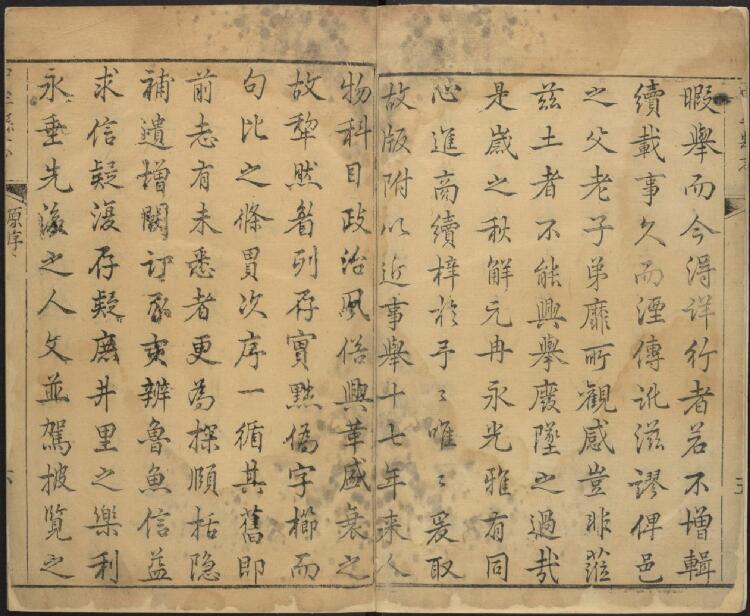 暇舉而今得詳行者若不增輯
續載事久而湮傳訛滋謬俾邑
之父老子弟靡所觀感豈非蒞
茲土者不能興舉廢墜之過哉
是歲之秋解元冉永光雅有同
心進商續梓於予予唯唯爰取
故版附以近事舉十七年來人
物科目政治風俗興革盛衰之
故犂然畧列存實黜偽字櫛而
句比之條貫次序一循其舊即
前志有未悉者更為探賾括隱
補遺增闕訂豕亥辨魯魚信益
求信疑復存疑庶井里之樂利
永垂先後之人文並駕披覽之
原序